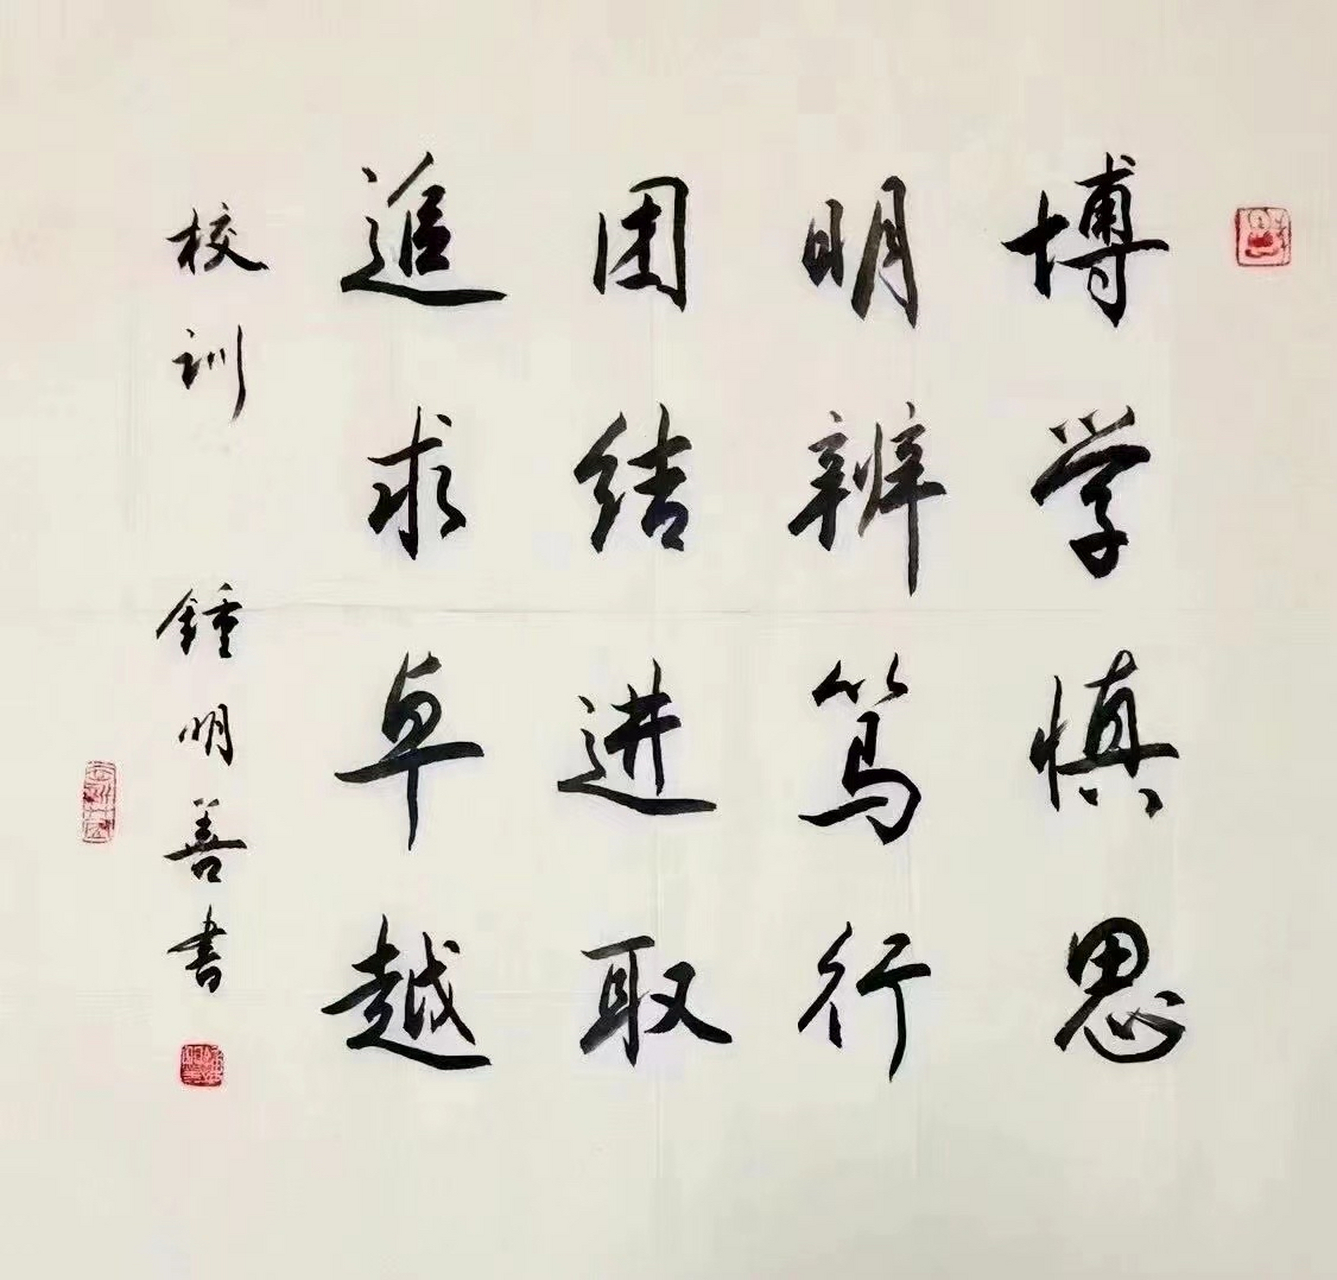 博学慎思
明辨笃行
团结进取
追求卓越
校训 锺明善书